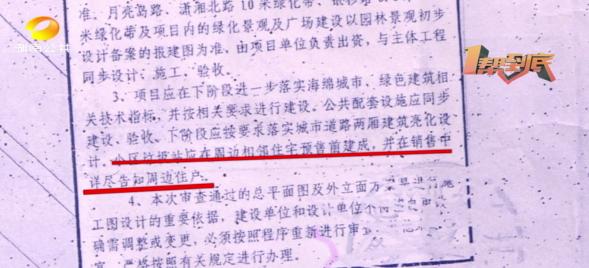 准、月亮岛路、潇湘北路 10 米绿化带、银杉
米绿化带及项目内的绿化景观及广场建设以园林景观初步
设计备案的报建图为准，由项目单位负责出资，与主体工程
同步设计、施工、验收。
3、项目应在下阶段进一步落实海绵城市、绿色建筑相
关技术指标，并按相关要求进行建设。公共配套设施应同步
建设、验收、下阶段应按要求落实城市道路两厢建筑亮化设
计。小区垃圾站应在周边相邻住宅预售前建成，并在销售中
详尽告知周边住户。
4、本次审查通过的总平面图及外立面方
工图设计的重要依据，建设单位和设计单位不
确需调整或变更，必须按照程序重新进行审
严格按照有关规定进行办理。
帮到底